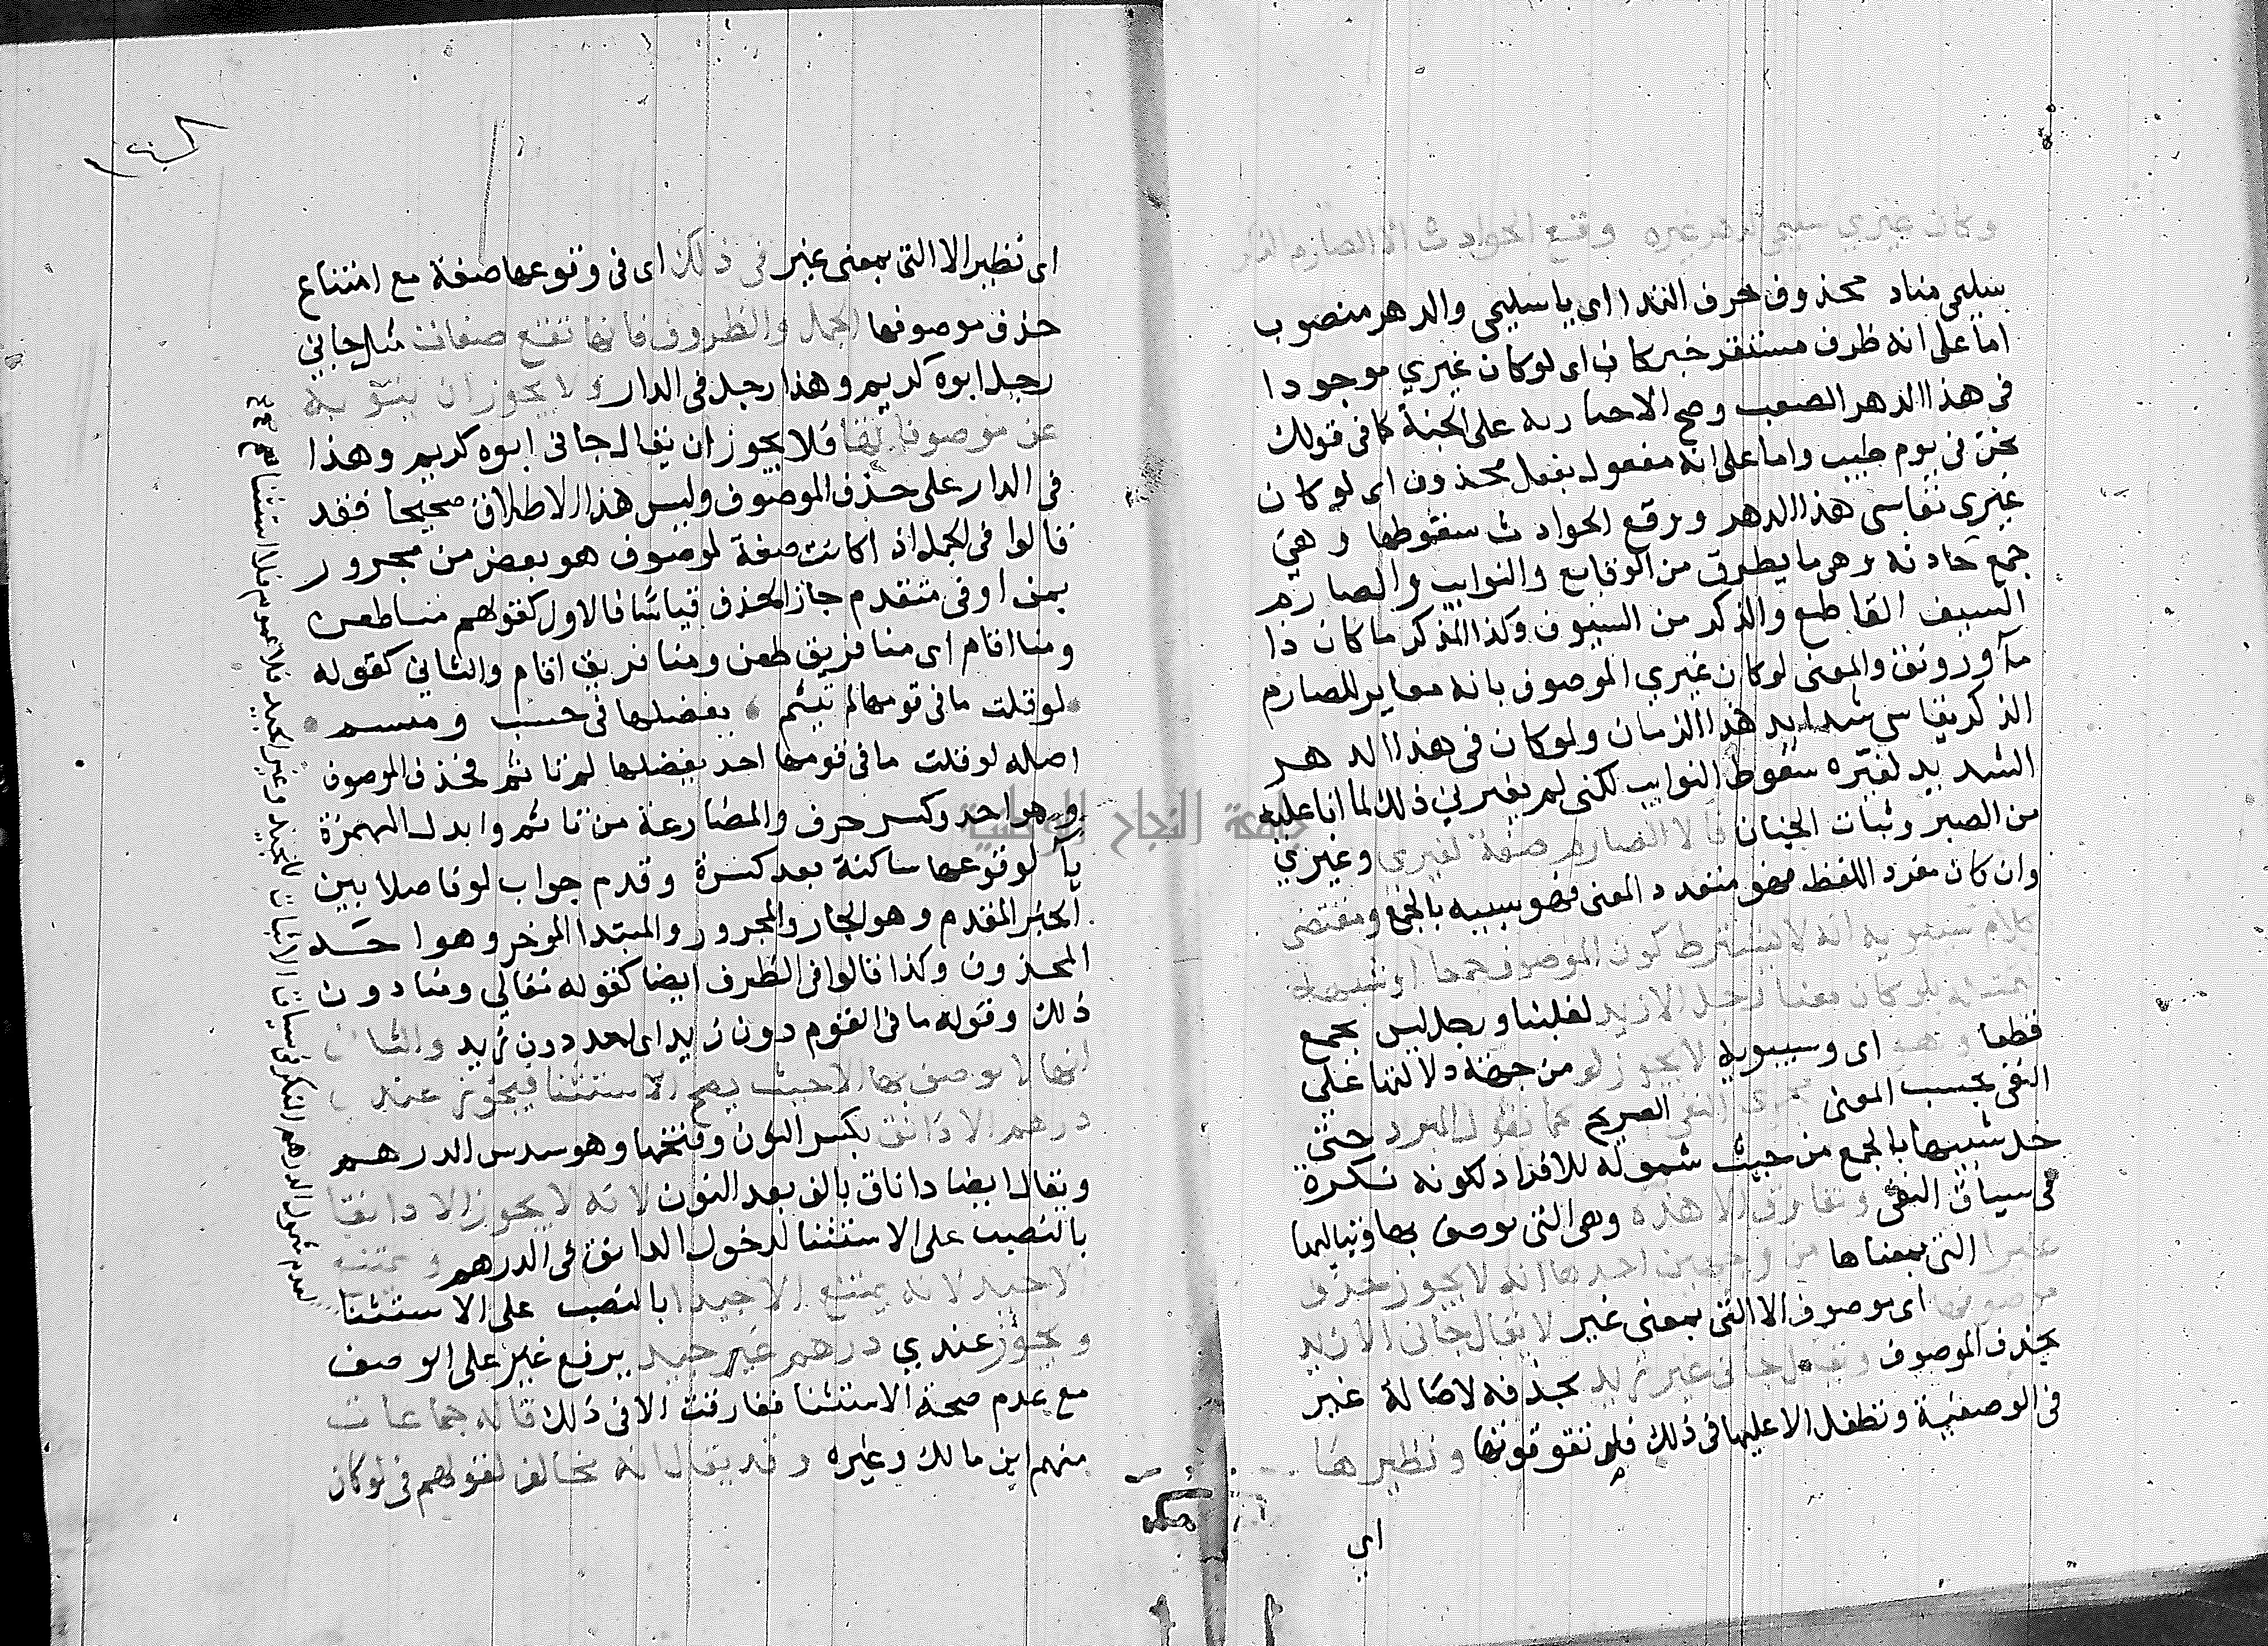 وكان غيري سليمى الدهر غيره وقع الحوادث الا الصارم الذكر
سليمى مناد محذوف حرف الندا اى يا سليمى والدهر منصوب
اما على انه ظرف مستقر خبر كان اى لو كان غيري موجودا
فى هذا الدهر الصعب وصح الاخبار به على الجثة كما فى قولك
نحن فى يوم طيب واما على انه مفعول بفعل محذوف اى لو كان
غيري يقاسى هذا الدهر ووقع الحوادث سقوطها وهى
جمع حادثه وهى ما يطرق من الوقايع والنوايب والصارم
السيف القاطع والذكر من السيوف وكذا المذكر ما كان ذا
مآ ورونق والمعنى لو كان غيري الموصوف بانه مغاير للصارم
الذكر يقاسى شدايد هذا الزمان ولو كان فى هذا الدهر
الشديد لغيّره سقوط النوايب لكنى لم يغيرنى ذلك لما انا عليه
من الصبر وثبات الجنان فالا الصارم صفة لغيرى وغيرى
وان كان مفرد اللفظ فهو متعدد المعنى فهو شبيه بالجمع ومقتضى
كلام سيبويه انه لا يشترط كون الموصوف جمعا او شبهه
لتمثيله بلو كان معنا رجل الا زيد لغلبنا ورجل ليس بجمع
قطعا وهو اى وسيبويه لا يجوز لو من جهة دلالتها على
النفى بحسب المعنى مجرى النفى الصريح كما يقول المبرد حتى
خد شبيها بالجمع من حيث شموله للافراد لكونه نكرة
فى سياق النفى وتفارق الا هذه وهى التى يوصف بها وبتاليها
غيرا التى بمعناها من وجهين احدهما انه لا يجوز حذف
موصوفها اى موصوف الا التى بمعنى غير لا يقال جانى الا زيد
بحذف الموصوف ويقال جانى غير زيد بحذفه لاصالة غير
فى الوصفية وتطفل الا عليها فى ذلك فلم تقو قوتها ونظيرها
اي
اى نظير الا التى بمعنى غير فى ذلك اى فى وقوعها صفة مع امتناع
حذف موصوفها الجمل والظروف فانها تقع صفات مثل جانى
رجل ابوه كريم وهذا رجل فى الدار ولا يجوز ان ينوب به
عن موصوفاتها فلا يجوز ان يقال جانى ابوه كريم وهذا
فى الدار على حذف الموصوف وليس هذا الاطلاق صحيحا فقد
قالوا فى الجملة اذا كانت صفة لموصوف هو بعض من مجرور
بمن او فى متقدم جاز الحذف قياسًا فالاول كقولهم منا ظعن
ومنا اقام اى منا فريق ظعن ومنا فريق اقام والثانى كقوله
لو قلت ما فى قومها لم تيثم يفضلها فى حسب وميسم
اصله لو قلت ما فى قومها احد يفضلها لم تاثم فحذف الموصوف
وهو احد وكسر حرف المضارعة من تاثم وابدل الهمزة
يآ لوقوعها ساكنة بعد كسرة وقدم جواب لو فاصلا بين
الخبر المقدم وهو الجار والمجرور والمبتدا الموخر وهو احد
المحذوف وكذا قالوا فى الظرف ايضا كقوله تعالي ومنا دون
ذلك وقوله ما فى القوم دون زيد اى احد دون زيد والثانى
انها لا يوصف بها الا حيث يصح الاستثنا فيجوز عندى
درهم الا دانق بكسر النون وفتحها وهو سدس الدرهم
ويقال ايضا داناق بالف بعد النون لانه لا يجوز الا دانقا
بالنصب على الاستثنا لدخول الدانق فى الدرهم ويمتنع
الا جيد لانه يمتنع الا جيدا بالنصب على الاستثنا
ويجوز عندي درهم غير جيد برفع غير على الوصف
مع عدم صحة الاستثنا ففارقت الا فى ذلك قاله جماعات
منهم ابن مالك وغيره وقد يقال انه مخالف لقولهم فى لو كان